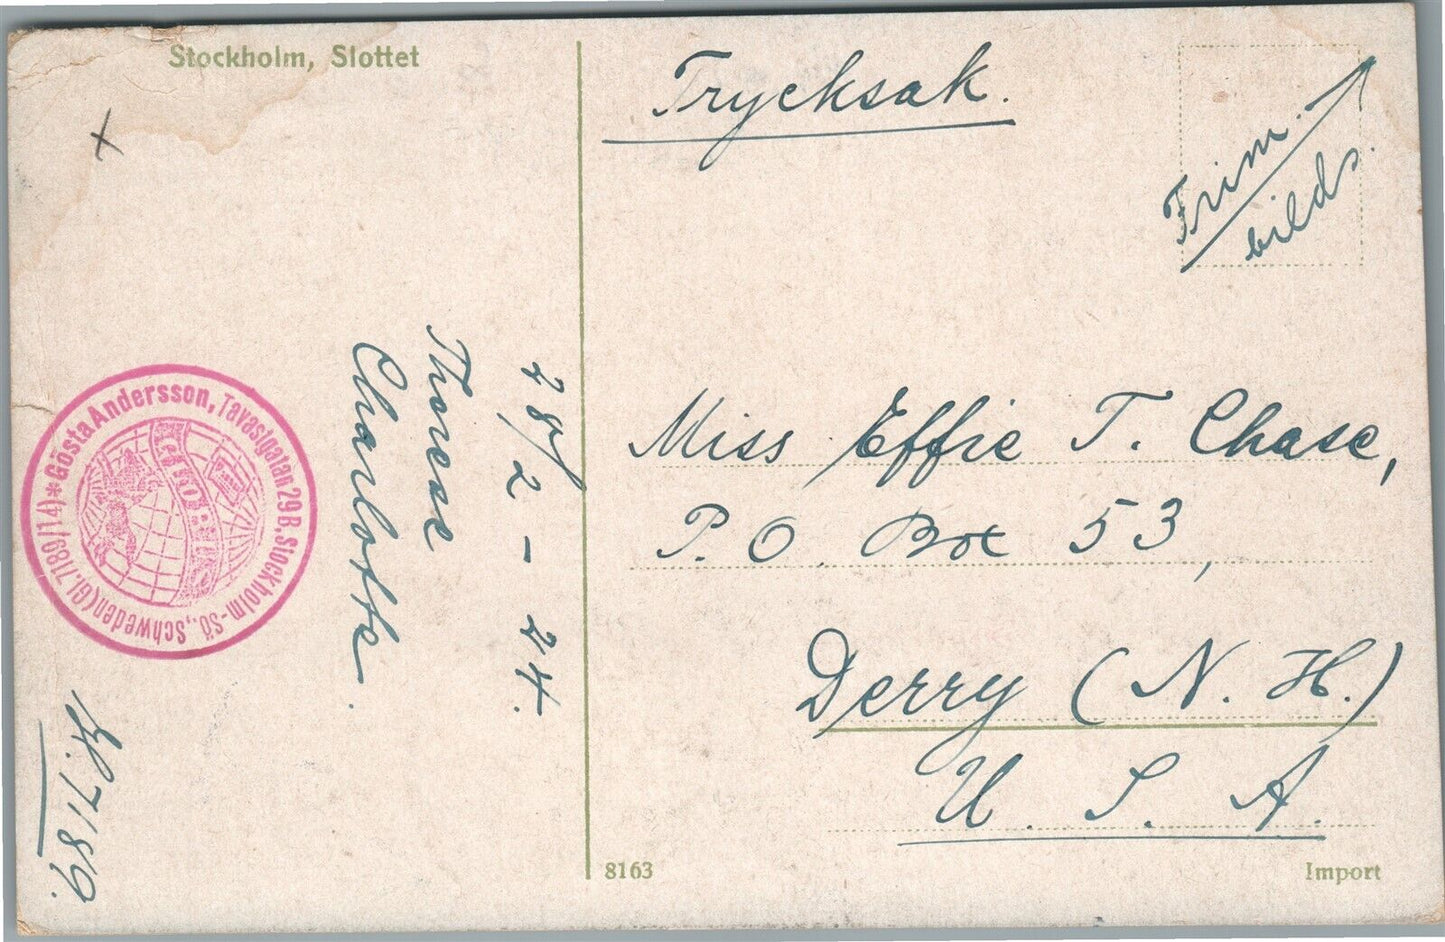 Stockholm, Slottet
Trycksak.
Frim.
bilds.
28/2 - 24.
Therese
Charlotte.
*GöstaAndersson, Tavastgatan 29 B, Stockholm-Sö., Schweden (Gl. 7189/14)
GLOBUS
Gl. 7189.
Miss Effie T. Chase,
P.O. Box 53,
Derry (N. H.)
U. S. A.
8163
Import